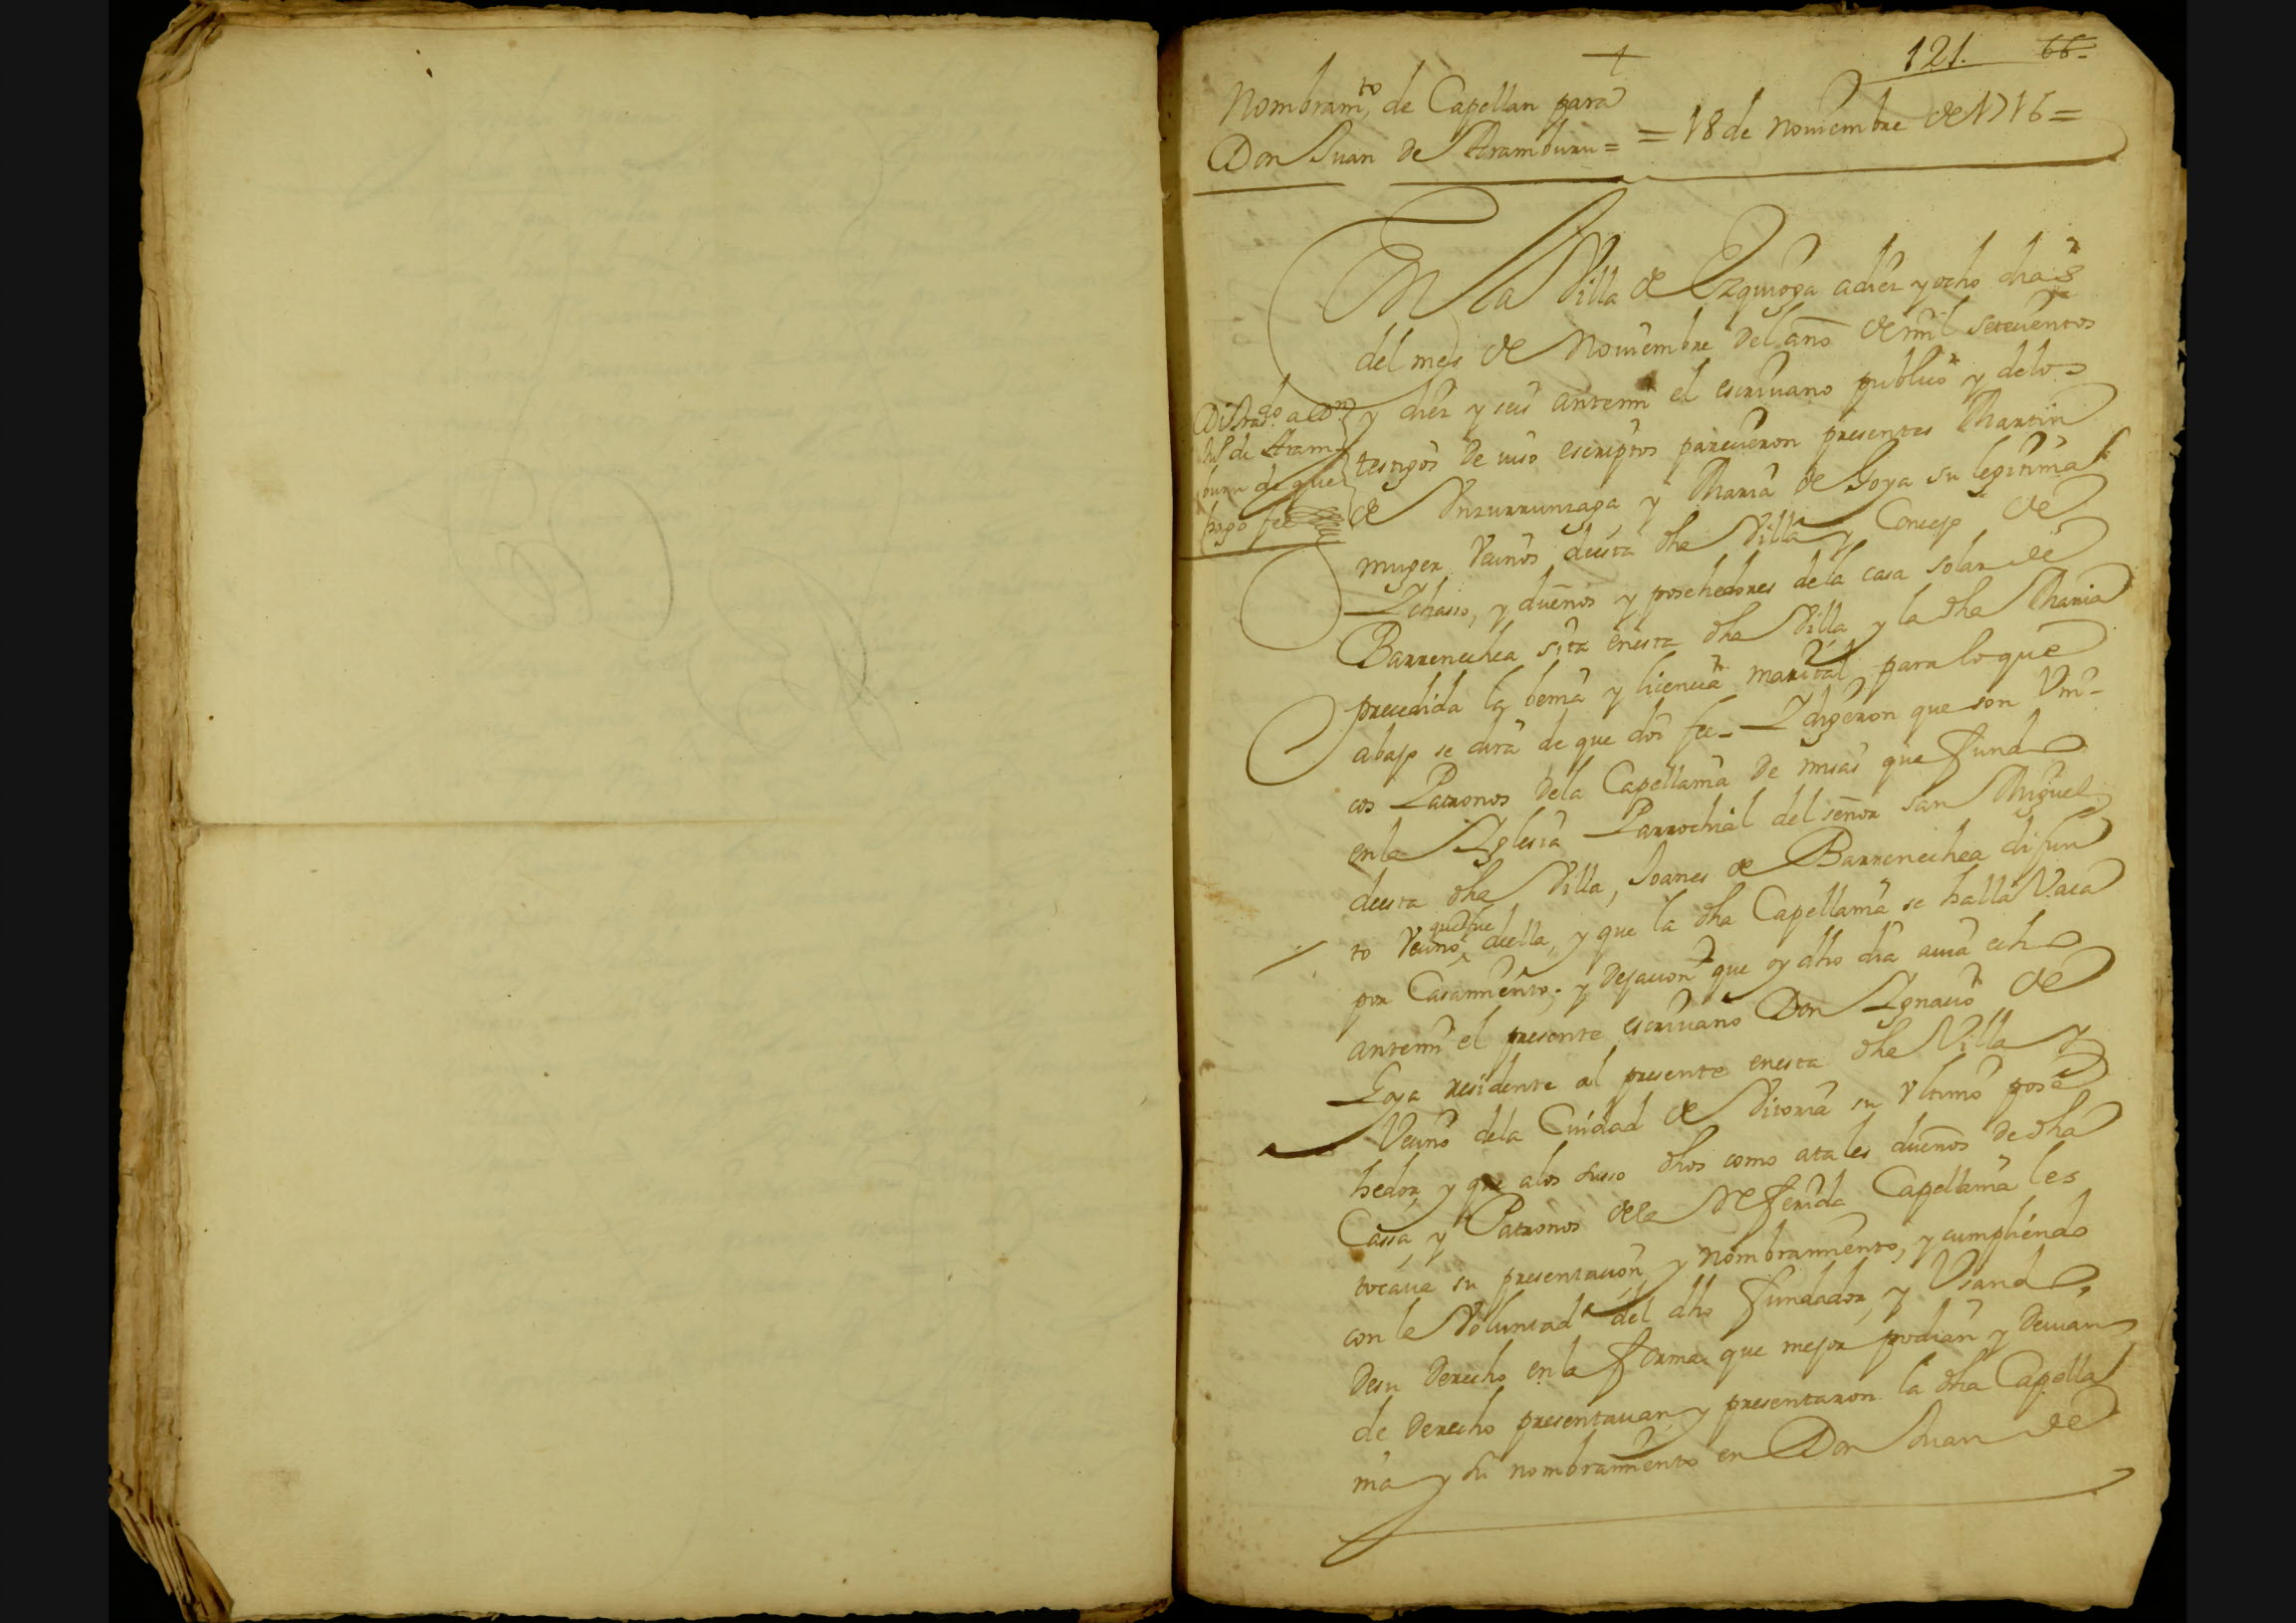 121. 66-
Nombram.to de Capellan para
Don Juan de Aramburu = = 18 de Noviembre de 1716 =
En la Villa de Ezquioga a diez y ocho dias
del mes de Noviembre del año de mil setecientos
y diez y seis antemi el escrivano publico y delos
testigos de iuso escriptos parecieron presentes Martin
de Insurrunzaga y Maria de Loya su legitima
muger Vecinos deesta dha Villa y Concejo de
Ychasso, y dueños y posehedores dela casa solar de
Barrenechea sita enesta dha Villa y la dha Maria
precedida la benia y licencia marital para loque
abajo se dira de que doi fee_ Y dijeron que son Vni-
cos Patronos dela Capellania de misas que fundo
enla Yglesia Parrochial del señor San Miguel
deesta dha Villa, Joanes de Barrenechea difun
to Vecino que fue deella, y que la dha Capellania se halla Vaca
por Casamiento, y dejacion que oy dho dia avia echo
antemi el presente escrivano Don Ygnacio de
Loya residente al presente enesta dha Villa y
Vecino dela Ciudad de Vitoria su Vltimo pose
hedor, y que alos susso dhos como atales dueños de dha
Cassa, y Patronos dela Referida Capellania les
tocava su presentacion y nombramiento, y cumpliendo
con la Voluntad del dho fundador, y Vsando
desu derecho enla forma que mejor podian y devian
de derecho presentavan y presentaron la dha Capella
nia y su nombramiento en Don Juan de
Di Trasdo. a Dn.
Ju.o de Aram
buru de que
hago fee